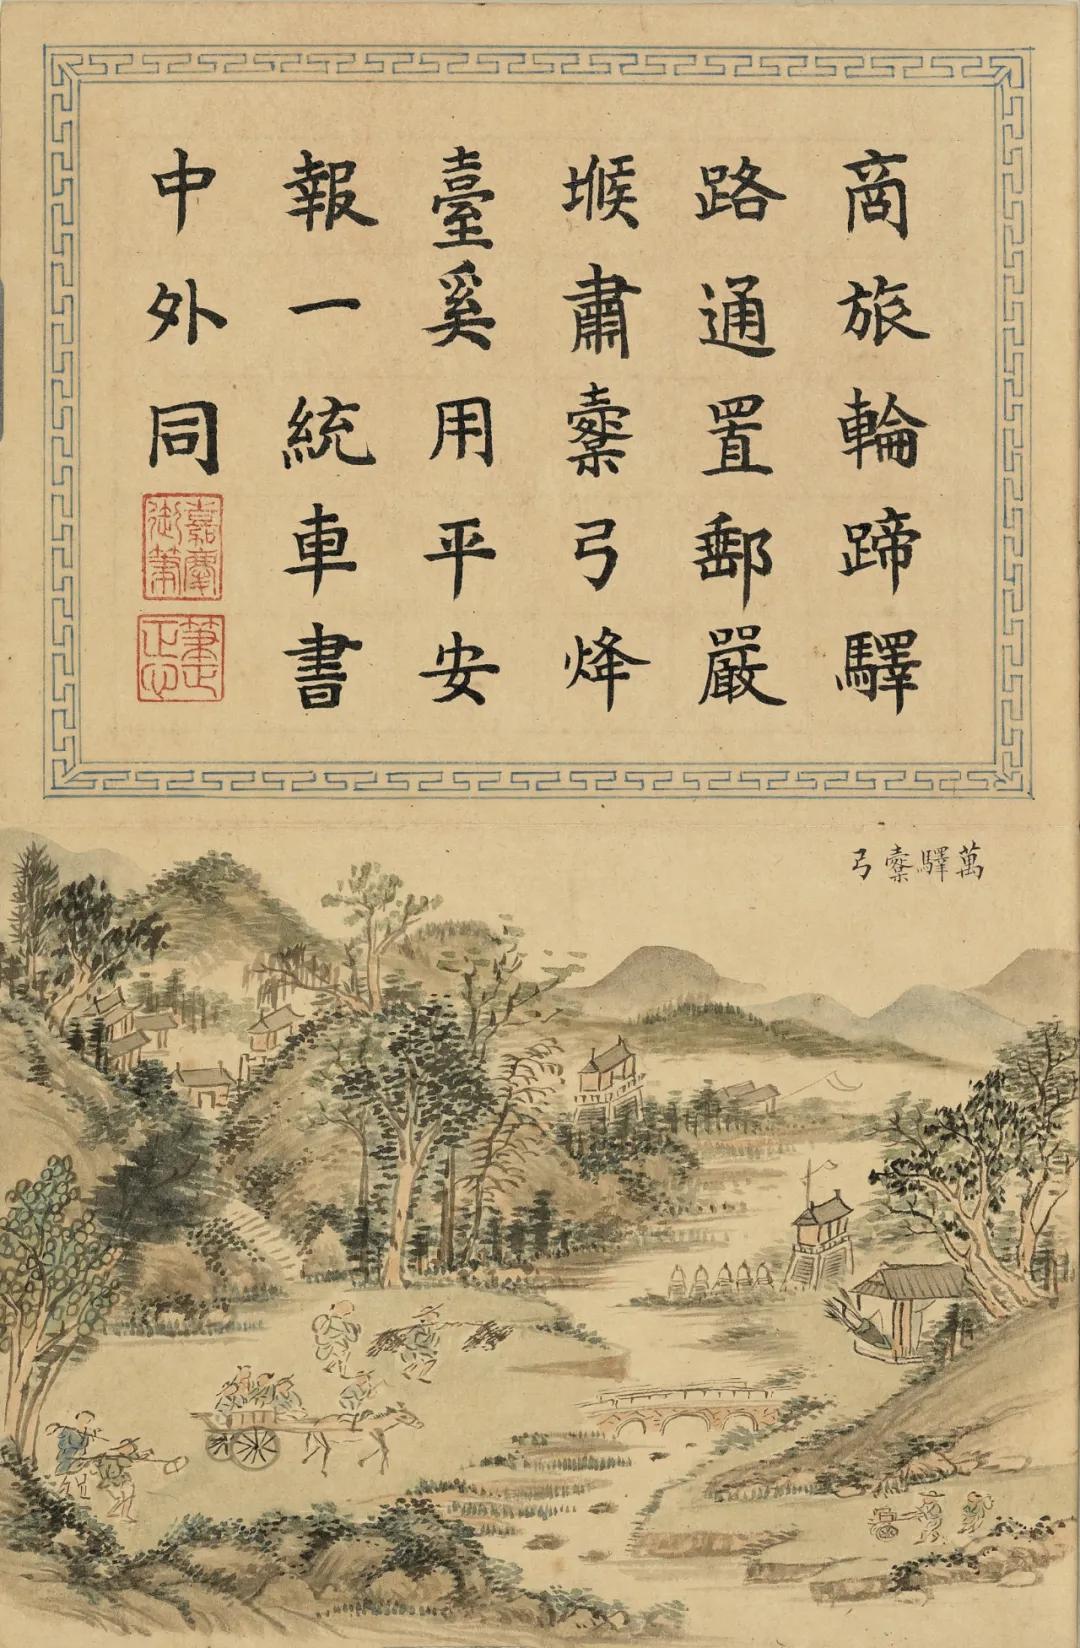 商旅輪蹄驛
路通置郵嚴
堠肅櫜弓烽
臺奚用平安
報一統車書
中外同
嘉慶御筆
萬驛櫜弓